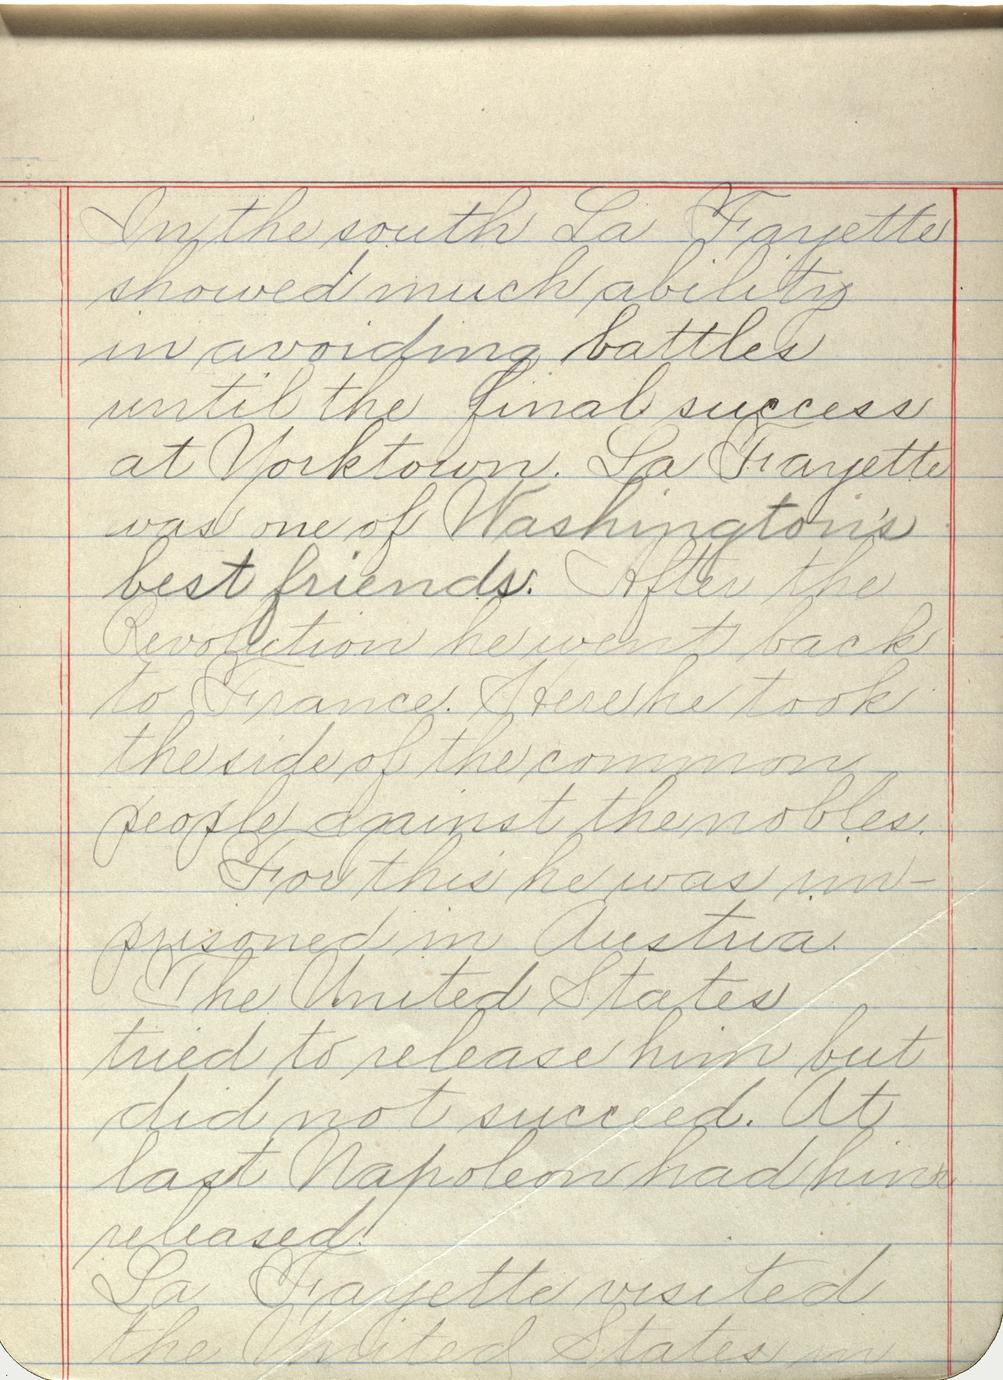 In the south La Fayette
showed much ability
in avoiding battles
until the final success
at Yorktown. La Fayette
was one of Washington's
best friends. After the
Revolution he went back
to France. Here he took
the side of the common
people against the nobles.
For this he was im-
prisoned in Austria.
The United States
tried to release him but
did not succeed. At
last Napoleon had him
released.
La Fayette visited
the United States in